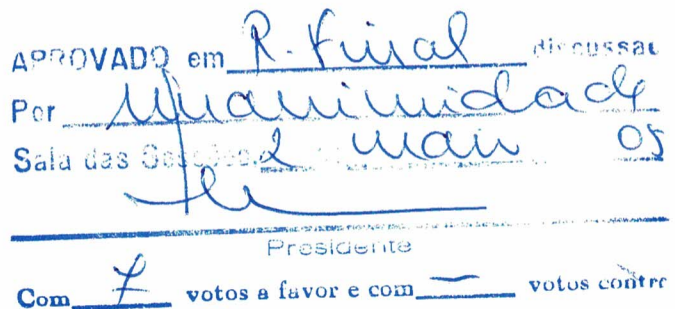 APROVADO em R. Final discussao
Por Unanimidade
Sala das Sessões, 2 maio 05
Presidente
Com 7 votos a favor e com — votos contra